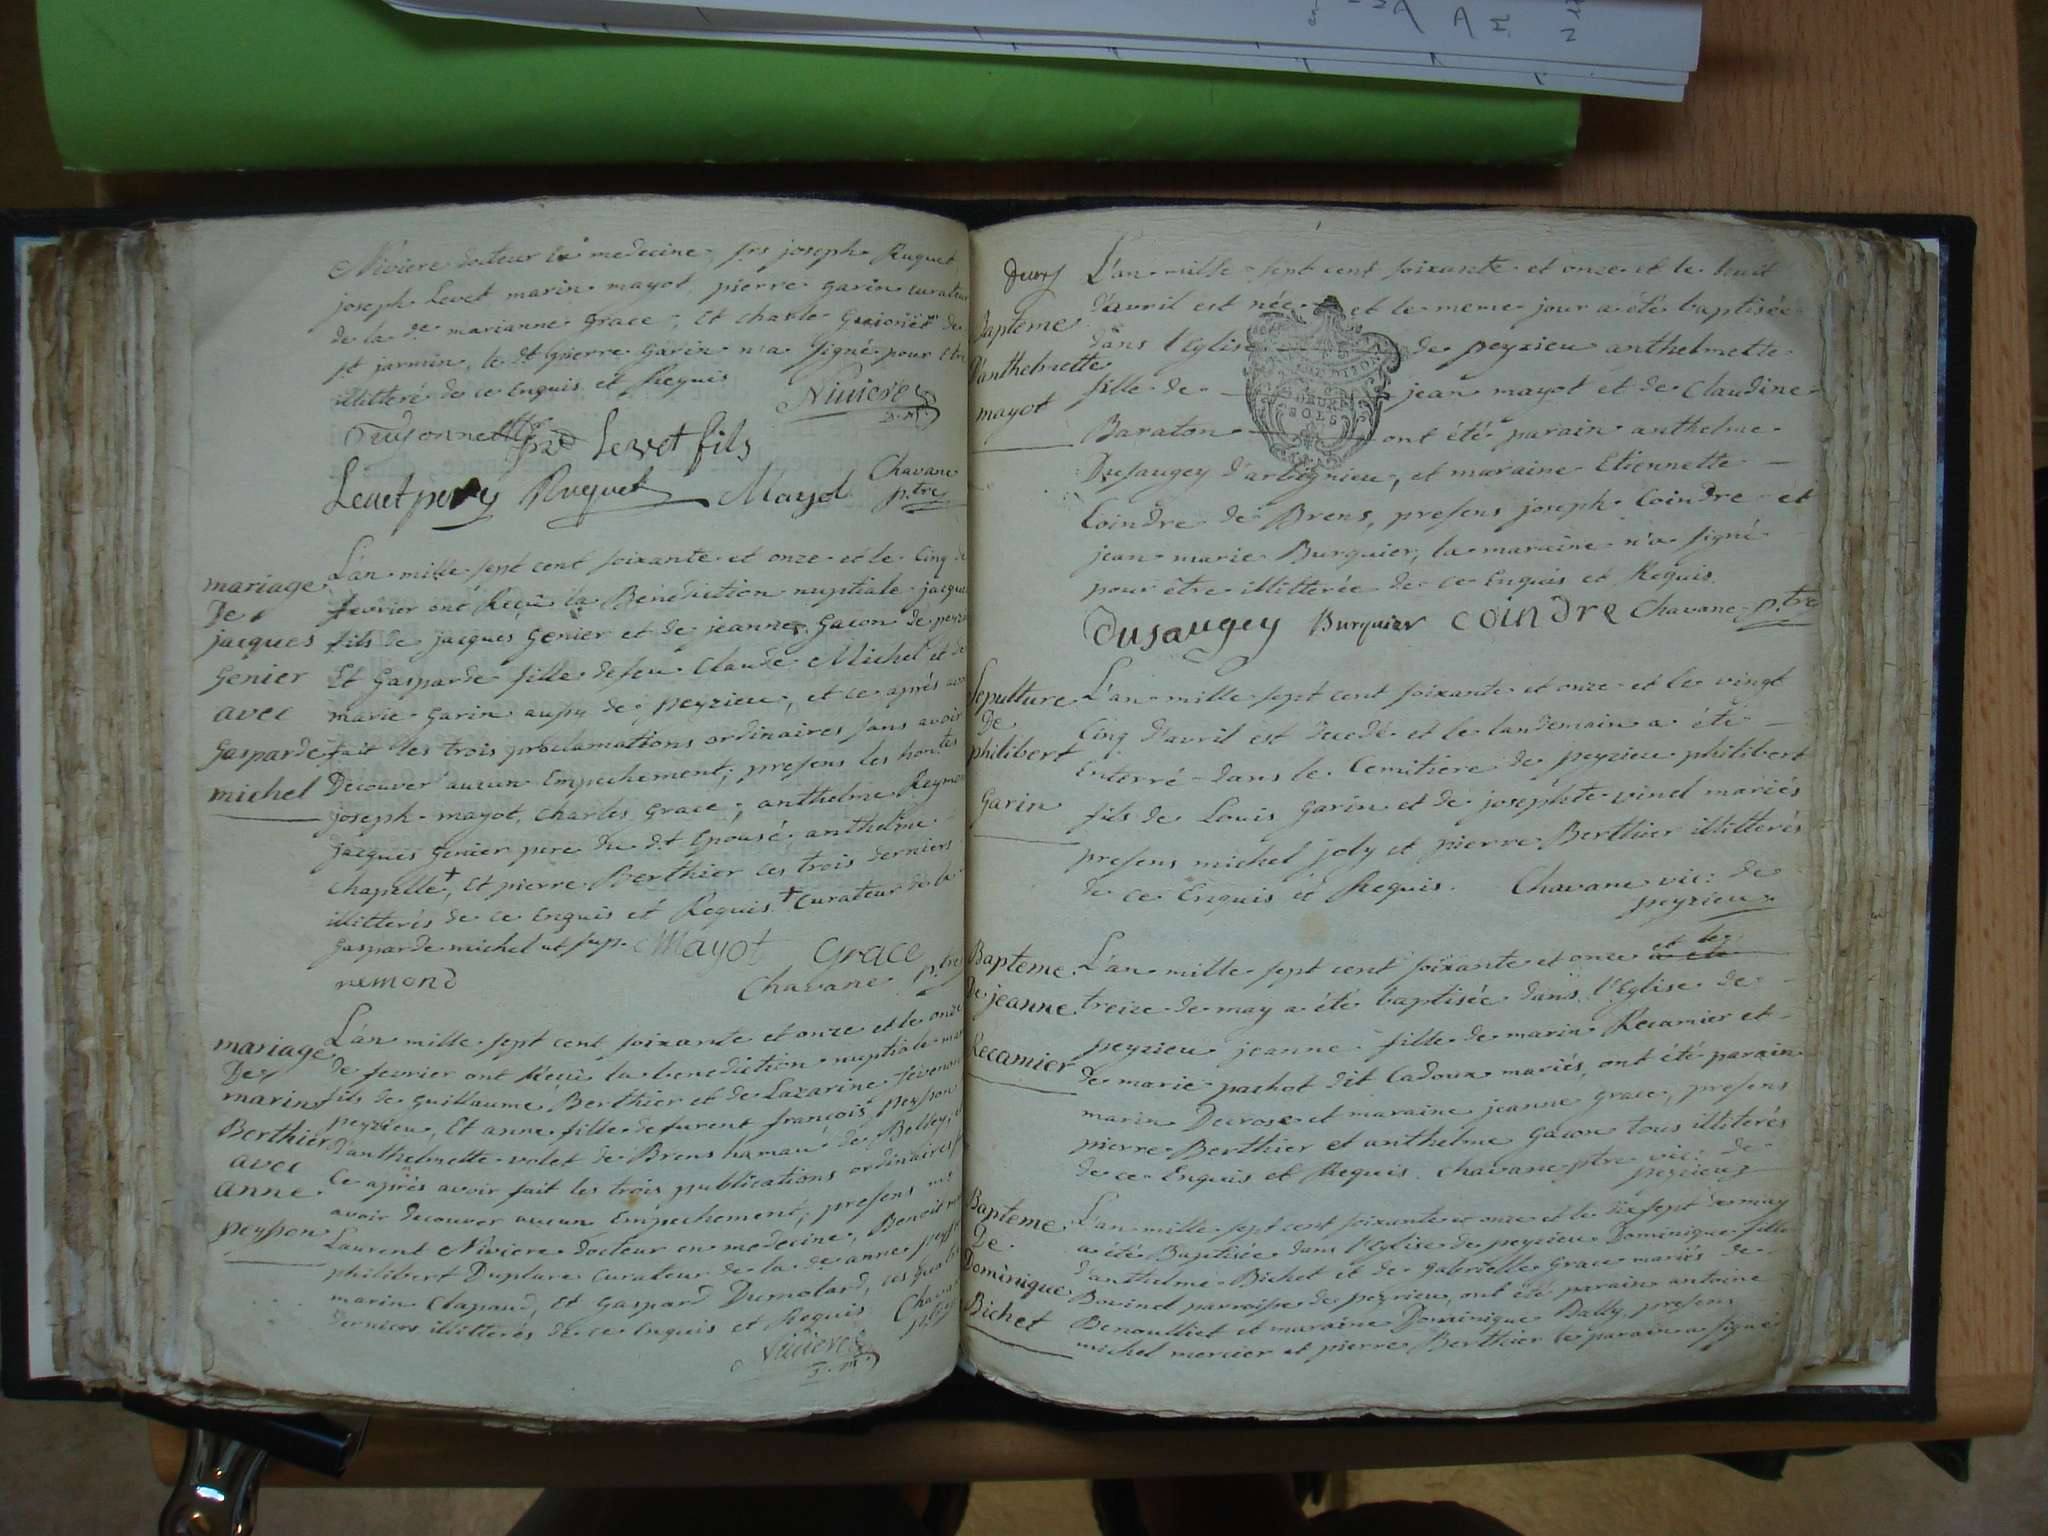 Niviere docteur en medecine, srs joseph Ruguet,
joseph Levet marin mayot, pierre garin curateur
de la de marianne grace, et charle de
st jarmin, le dt pierre garin n'a signé pour etre
illitteré de ce Enquis et Requis
Niviere
D. M.
Levet fils
Levet Ruguet Mayot Chavane
p.tre
mariage
De
jacques
Genier
avec
Gasparde
michel
L'an mille sept cent soixante et onze et le Cinq de
fevrier ont Reçu la Benediction nuptiale jacques
fils de jacques Genier et de jeanne Gacon de peyzieu
Et Gasparde fille de feu Claude Michel et de
marie garin aussy de peyzieu, et ce aprés avoir
fait les trois proclamations ordinaires sans avoir
Decouver aucun Empechement; presens les hontes
joseph mayot, Charles Grace, anthelme Reymond
jacques Genier pere du dt Epousé, anthelme
Chapelle +, Et pierre Berthier ces trois derniers
illitterés de ce Enquis et Requis. + Curateur de la
Gasparde michel ut sup. Mayot Grace
remond Chavane p.tre
mariage
De
marin
Berthier
avec
anne
peysson
L'an mille sept cent soixante et onze et le onze
de fevrier ont Reçu la benediction nuptiale marin
fils de guillaume Berthier et de Lazarine
peyzieu, Et anne fille de furent françois peysson
d'anthelmette volet de Brens hamau de Belley, et
Ce aprés avoir fait les trois publications ordinaires
avoir decouver aucun Empechement; presens
Laurent Niviere docteur en medecine, Benoit
philibert Duplare curateur de la de anne peysson
marin Clapand, Et Gaspard Dumolard, ces quatre
derniers illitterés de ce Enquis et Requis Chavane
p.tre
Niviere
D. M.
Bapteme
D'anthelmette
mayot
L'an mille sept cent soixante et onze et le huit
d'avril est née et le meme jour a été baptisée
dans l'Eglise de peyzieu anthelmette
fille de jean mayot et de Claudine
Baraton ont été parain anthelme
Dusaugey d'arbignieu, et maraine Etiennette
Coindre de Brens, presens joseph Coindre et
jean marie Burquier, la maraine n'a signé
pour être illitterée de ce Enquis et Requis.
Dusaugey Burquier Coindre Chavane p.tre
Sepulture
De
philibert
Garin
L'an mille sept cent soixante et onze et le vingt
Cinq d'avril est decedé et le landemain a été
Enterré dans le Cemitiere de peyzieu philibert
fils de Louis garin et de josephte vinel mariés
presens michel joly et pierre Berthier illitterés
de ce Enquis et Requis. Chavane vic: de
peyzieu
Bapteme
De jeanne
Recamier
L'an mille sept cent soixante et onze et le
treize de may a été baptisée dans l'Eglise de
peyzieu jeanne fille de marin Recamier et
de marie pachot dit Cadoux mariés, ont été parain
marin Decrose et maraine jeanne grace, presens
pierre Berthier et anthelme Gacon tous illiterés
de ce Enquis et Requis. Chavane ptre vic: de
peyzieu
Bapteme
De
Dominique
Bichet
L'an mille sept cent soixante et onze et le dix sept de may
a été Baptisée dans l'Eglise de peyzieu Dominique fille
d'anthelme Bichet et de gabrielle Grace mariés de
Bovinel parroisse de peyzieu, ont été parain antoine
Benoulliet et maraine Dominique Bally, presens
michel mercier et pierre Berthier le parain a signé